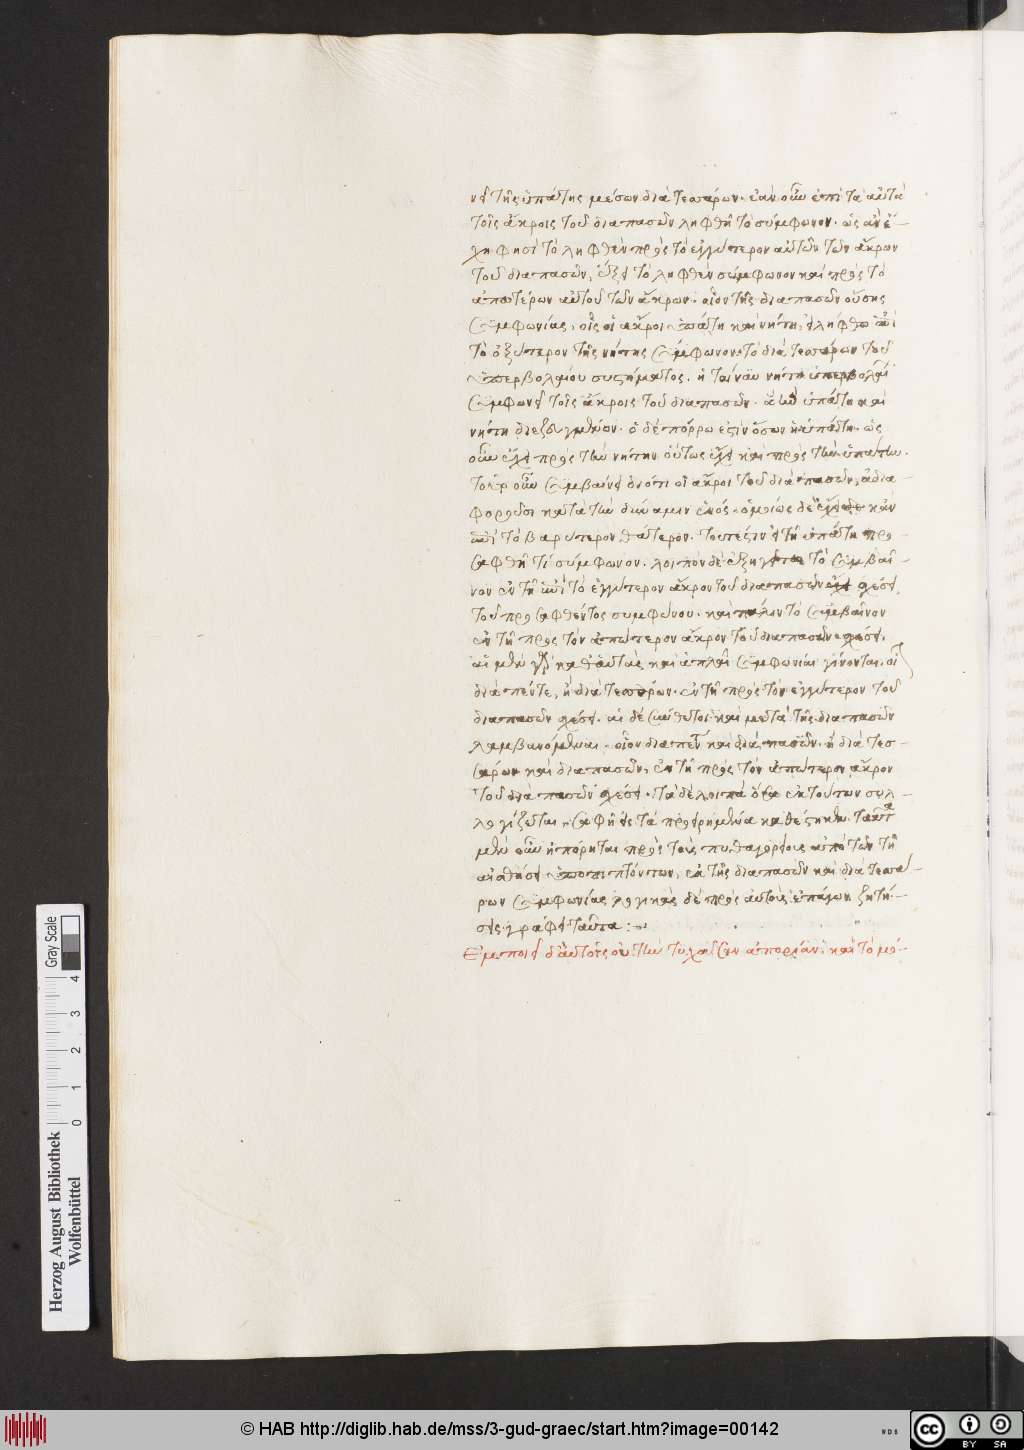 νει τῆς ὑπάτης μέσων διὰ τεσσάρων. ἐὰν οὖν ἐπὶ τὰ αὐτὰ
τοῖς ἄκροις τοῦ διαπασῶν ληφθῇ τὸ σύμφωνον. ὡς ἂν ἔ-
χῃ φησὶ τὸ ληφθὲν πρὸς τὸ ἐγγύτερον αὐτῶν τῶν ἄκρων
τοῦ διαπασῶν, ἕξει τὸ ληφθὲν σύμφωνον καὶ πρὸς τὸ
ἀπωτέρων αὐτοῦ τῶν ἄκρων. οἷον τῆς διαπασῶν οὔσης
συμφωνίας, οἷς οἱ ἄκροι ὑπάτη καὶ νήτη, εἰλήφθω ἐπὶ
τὸ ὀξύτερον τῆς νήτης σύμφωνον τὸ διὰ τεσσάρων τοῦ
ὑπερβολαίου συστήματος. ἡ τοίνυν νήτη ὑπερβολαί
συμφωνεῖ τοῖς ἄκροις τοῦ διαπασῶν. ὑπάτη καὶ
νήτη διεζευγμένων. ὁ δὲ πόρρω ἐστὶν ὅσων ἡ ὑπάτη. ὡς
οὖν ἔχει πρὸς τὴν νήτην οὕτως ἔχει καὶ πρὸς τὴν ὑπάτην.
τοῦτο γὰρ οὖν συμβαίνει διότι οἱ ἄκροι τοῦ διαπασῶν, ἀδια-
φοροῦσι κατὰ τὴν δύναμιν ἑνός. ὁμοίως δὲ ἔχει δὲ κἂν
ἐπὶ τὸ βαρύτερον θάτερον. τουτέστιν εἰ τῇ ὑπάτῃ προ-
σαφθῇ τὶ σύμφωνον. λοιπὸν δὲ ἐξηγεῖται τὸ συμβαῖ-
νον ἐν τῇ ἐπὶ τὸ ἐγγύτερον ἄκρον τοῦ διαπασῶν σχέσει,
τοῦ προσαφθέντος συμφώνου. καὶ πάλιν τὸ συμβαῖνον
ἐν τῇ πρὸς τὸν ἀπώτερον ἄκρον τοῦ διαπασῶν σχέσει.
αἱ μὲν γὰρ καθ' αὑτὰς καὶ ἁπλαῖ συμφωνίαι γίνονται. οἷ
διὰ πέντε, ἢ διὰ τεσσάρων. ἐν τῇ πρὸς τὸν ἐγγύτερον τοῦ
διαπασῶν σχέσει. αἱ δὲ σύνθετοι καὶ μετὰ τῆς διαπασῶν
λαμβανόμεναι. οἷον διαπεντ καὶ διὰ πασῶν. ἢ διὰ τεσ-
σάρων καὶ διαπασῶν, ἐν τῇ πρὸς τὸν ἀπώτερον ἄκρον
τοῦ διὰ πασῶν σχέσει. τὰ δὲ λοιπὰ ὅσα ἐκ τούτων συλ-
λογίζεται, σαφῆ εἰς τὰ προειρημένα καθέστηκεν. ταῦτα
μὲν οὖν ἠπόρηται πρὸς τοὺς πυθαγορείους ἀπὸ τῶν τῇ
αἰσθήσει ὑποπιπτόντων, ἐκ τῆς διαπασῶν καὶ διὰ τεσσά-
ρων συμφωνίας λογικὰς δὲ πρὸς αὐτοὺς ἐπάγων ζητή-
σεις γράφει ταῦτα:
Ἐμποιεῖ δ' αὐτοῖς οὐ τὴν τυχοῦσαν ἀπορίαν. καὶ τὸ μό-
Herzog August Bibliothek
Wolfenbüttel
0 1 2 3 4
Gray Scale
© HAB http://diglib.hab.de/mss/3-gud-graec/start.htm?image=00142
cc BY SA